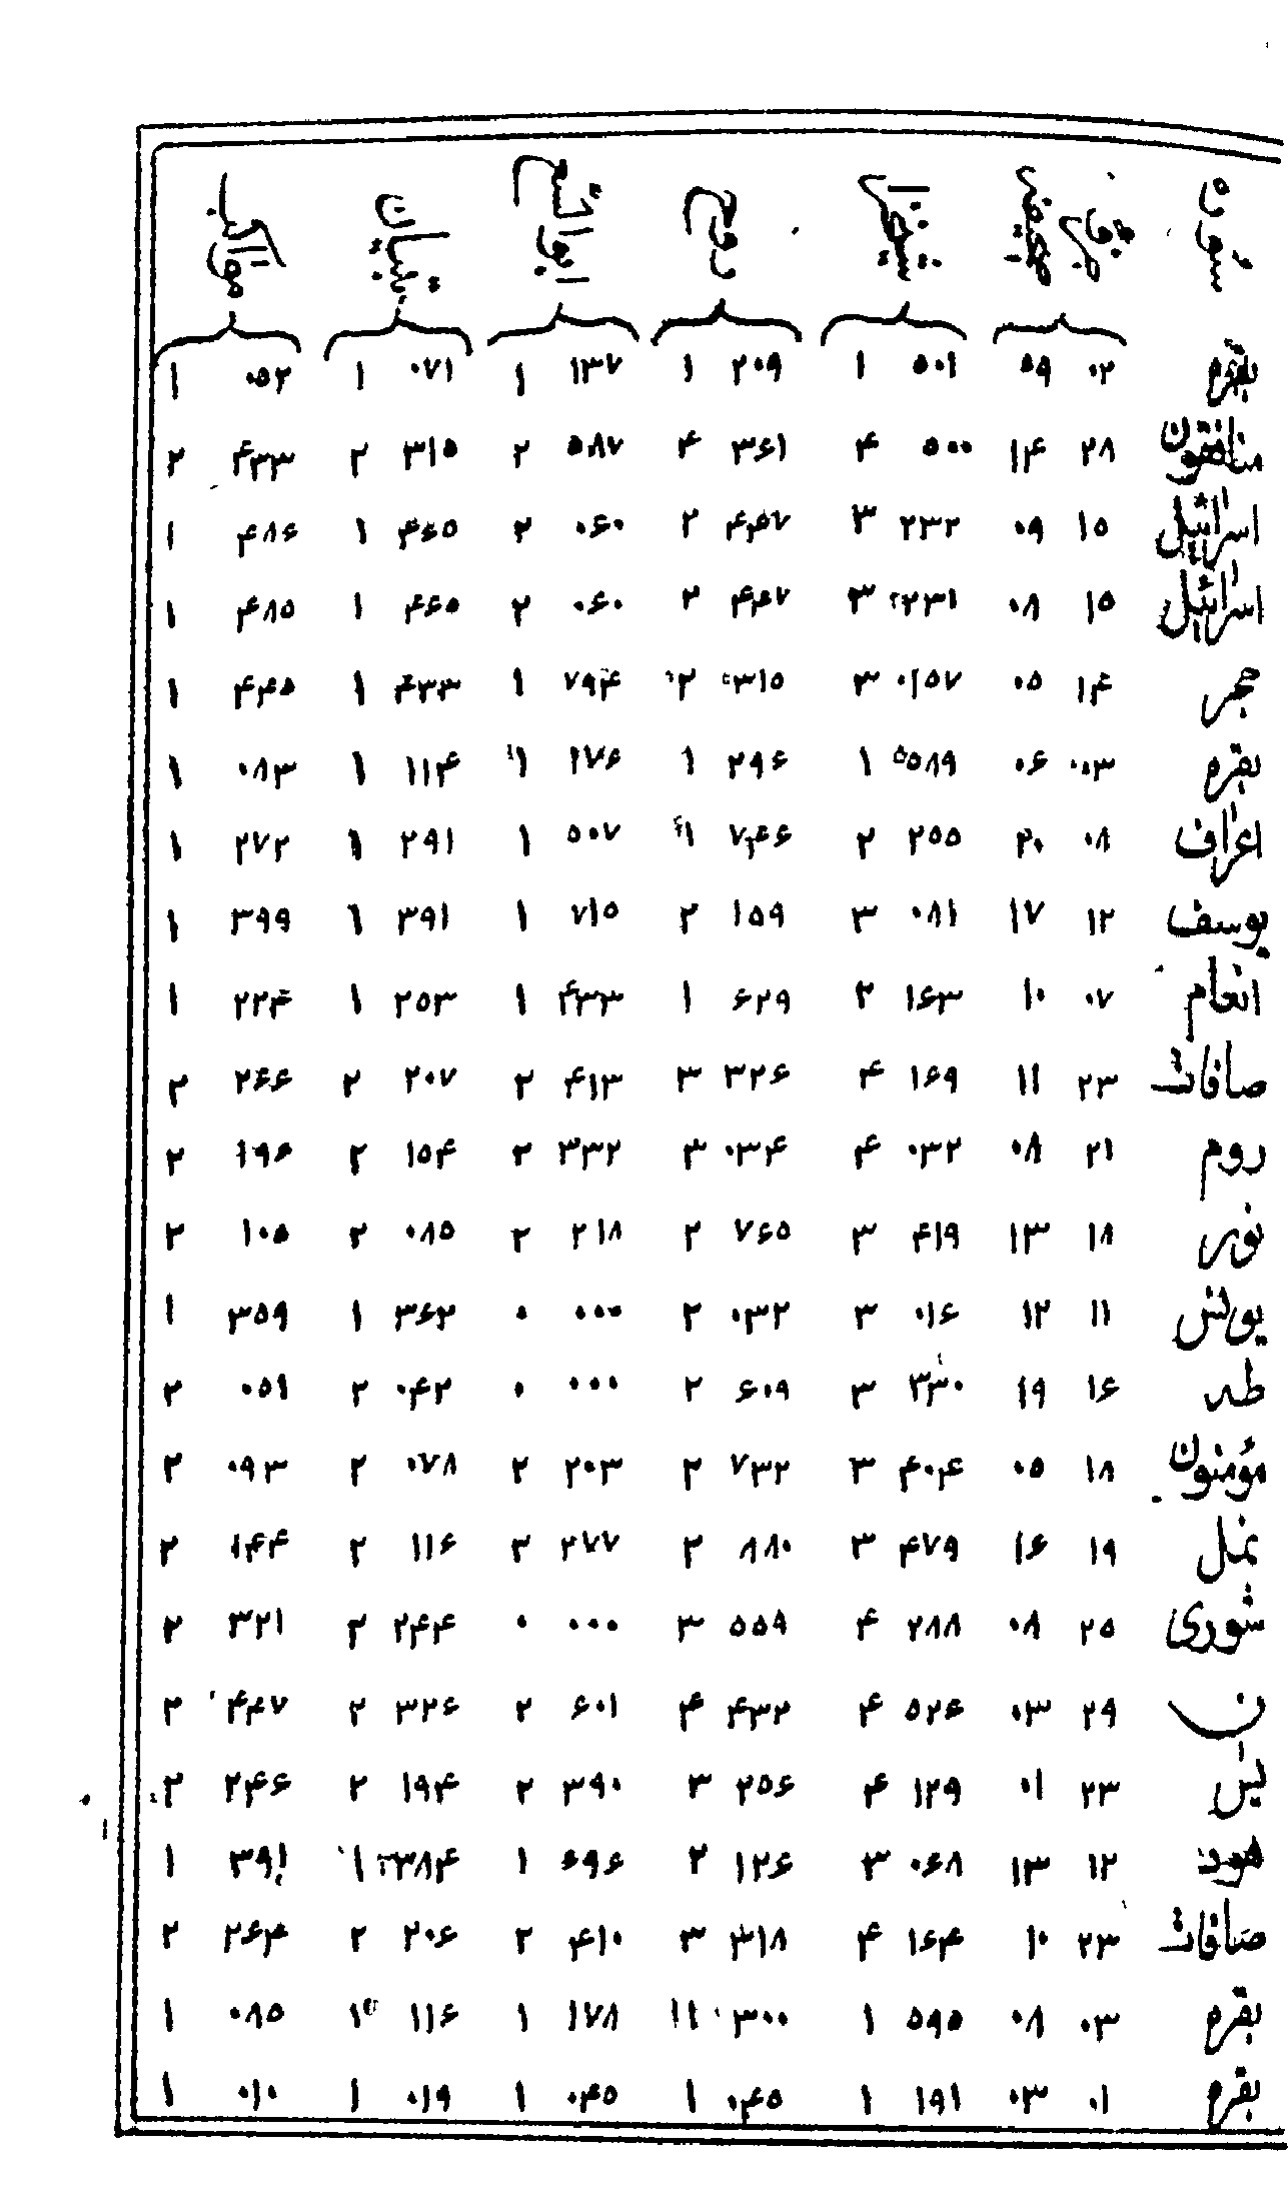 سوره جزو صحيفه شيخزاده روح ابوالليث تبيان مواكب
بقره ۰۲ ۵۹ ۵۰۱ ۱ ۲۰۹ ۱ ۱۳۷ ۱ ۰۷۱ ۱ ۰۵۲ ۱
منافقون ۲۸ ۱۴ ۵۰۰ ۴ ۳۶۱ ۴ ۵۸۷ ۲ ۳۱۵ ۲ ۴۳۳ ۲
اسرائيل ۱۵ ۰۹ ۲۳۲ ۳ ۴۴۷ ۲ ۰۶۰ ۲ ۴۶۵ ۱ ۴۸۶ ۱
اسرائيل ۱۵ ۰۸ ۲۳۱ ۳ ۴۴۷ ۲ ۰۶۰ ۲ ۴۶۵ ۱ ۴۸۵ ۱
حجر ۱۴ ۰۵ ۱۵۷ ۳ ۳۱۵ ۲ ۷۹۴ ۱ ۴۳۳ ۱ ۴۴۵ ۱
بقره ۰۳ ۰۶ ۵۸۹ ۱ ۲۹۶ ۱ ۱۷۶ ۱ ۱۱۴ ۱ ۰۸۳ ۱
اعراف ۰۸ ۲۰ ۲۵۵ ۲ ۷۴۶ ۱ ۵۰۷ ۱ ۲۹۱ ۱ ۲۷۲ ۱
يوسف ۱۲ ۱۷ ۰۸۱ ۳ ۱۵۹ ۲ ۷۱۵ ۱ ۳۹۱ ۱ ۳۹۹ ۱
انعام ۰۷ ۱۰ ۱۶۳ ۲ ۶۲۹ ۱ ۴۳۳ ۱ ۲۵۳ ۱ ۲۲۴ ۱
صافات ۲۳ ۱۱ ۱۶۹ ۴ ۳۲۶ ۳ ۴۱۳ ۲ ۲۰۷ ۲ ۲۶۶ ۲
روم ۲۱ ۰۸ ۰۳۲ ۴ ۰۳۴ ۳ ۳۳۲ ۲ ۱۵۴ ۲ ۱۹۶ ۲
نور ۱۸ ۱۳ ۴۱۹ ۳ ۷۶۵ ۲ ۲۱۸ ۲ ۰۸۵ ۲ ۱۰۵ ۲
يونس ۱۱ ۱۲ ۰۱۶ ۳ ۰۳۲ ۲ ۰۰۰ ۰ ۳۶۲ ۱ ۳۵۹ ۱
طه ۱۶ ۱۹ ۳۳۰ ۳ ۶۰۹ ۲ ۰۰۰ ۰ ۰۴۲ ۲ ۰۵۱ ۲
مؤمنون ۱۸ ۰۵ ۴۰۴ ۳ ۷۳۲ ۲ ۲۰۳ ۲ ۰۷۸ ۲ ۰۹۳ ۲
نمل ۱۹ ۱۶ ۴۷۹ ۳ ۸۸۰ ۲ ۲۷۷ ۲ ۱۱۶ ۲ ۱۴۴ ۲
شورى ۲۵ ۰۸ ۲۸۸ ۴ ۵۵۹ ۳ ۰۰۰ ۰ ۲۴۴ ۲ ۳۲۱ ۲
ن ۲۹ ۰۳ ۵۲۶ ۴ ۴۳۲ ۴ ۶۰۱ ۲ ۳۲۶ ۲ ۴۴۷ ۲
يس ۲۳ ۰۱ ۱۲۹ ۴ ۲۵۶ ۳ ۳۹۰ ۲ ۱۹۴ ۲ ۲۴۶ ۲
هود ۱۲ ۱۳ ۰۶۸ ۳ ۱۲۶ ۲ ۶۹۶ ۱ ۳۸۴ ۱ ۳۹۱ ۱
صافات ۲۳ ۱۰ ۱۶۴ ۴ ۳۱۸ ۳ ۴۱۰ ۲ ۲۰۶ ۲ ۲۶۴ ۲
بقره ۰۳ ۰۸ ۵۹۵ ۱ ۳۰۰ ۱ ۱۷۸ ۱ ۱۱۶ ۱ ۰۸۵ ۱
بقره ۰۱ ۰۳ ۱۹۱ ۱ ۰۴۵ ۱ ۰۴۵ ۱ ۰۱۹ ۱ ۰۱۰ ۱